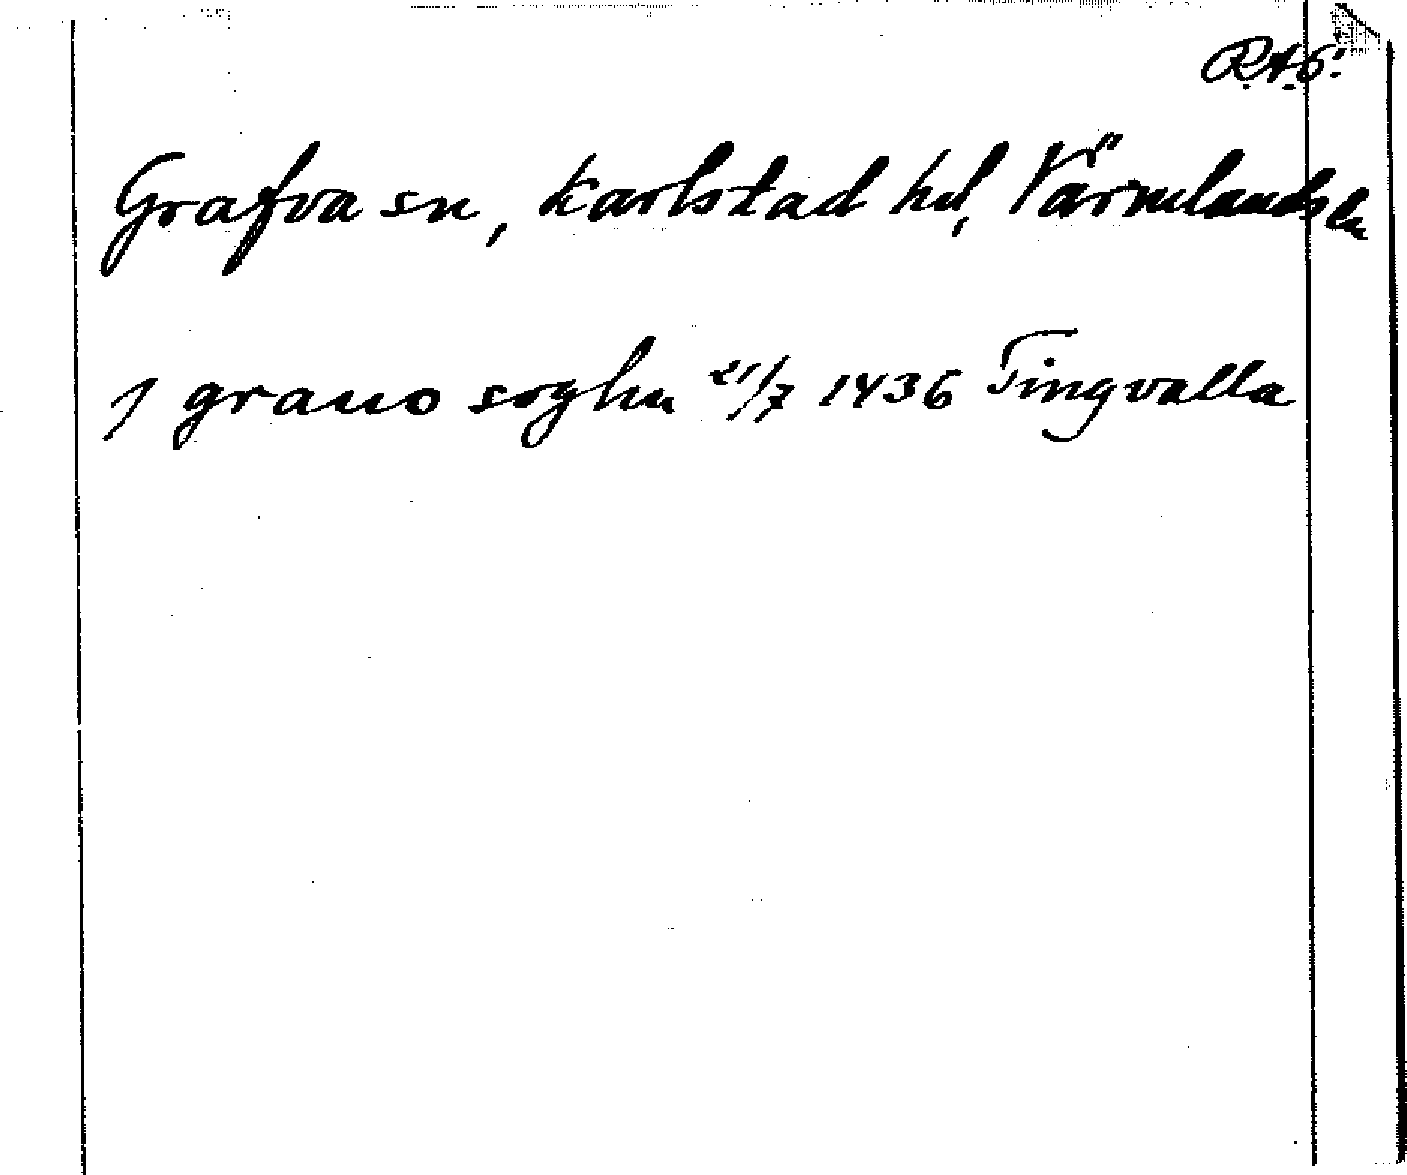 R.A.6.
Grafva sn, Karlstad hd, Värmlands ln
J grauo soghn 21/7 1436 Tingvalla